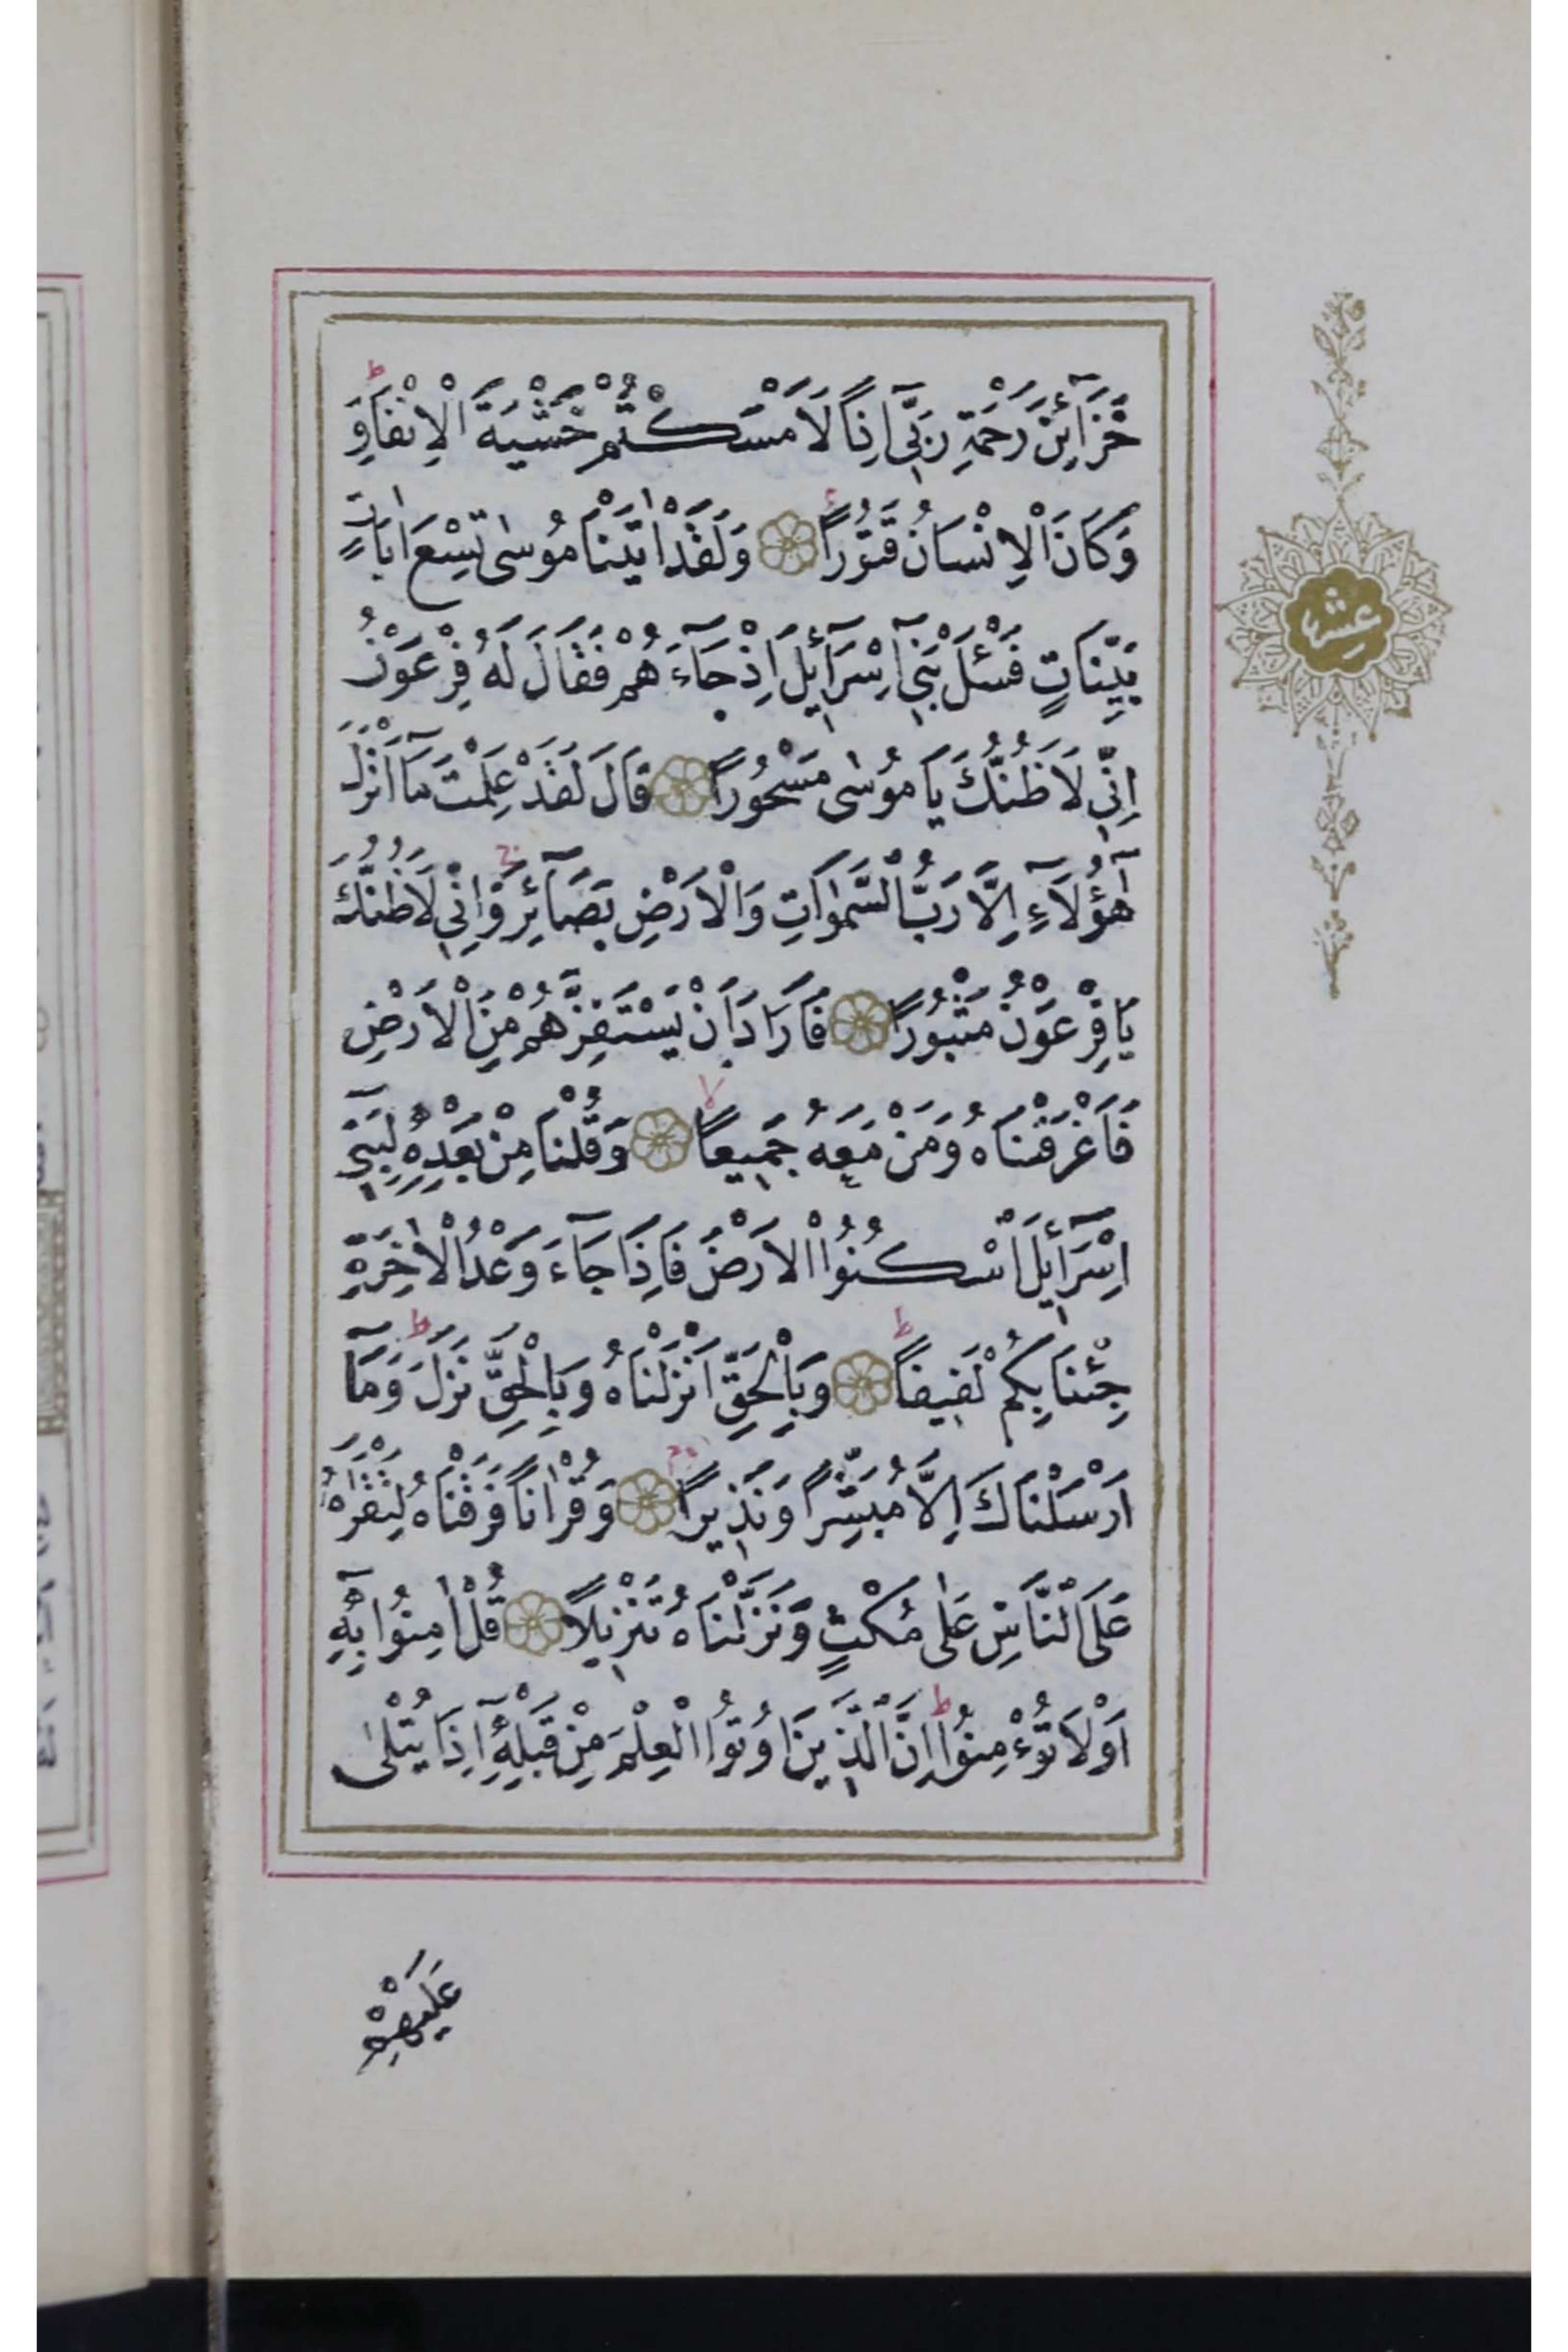 خَزَآئِنَ رَحْمَةِ رَبّٖٓي اِذًا لَاَمْسَكْتُمْ خَشْيَةَ الْاِنْفَاقِ ط
وَكَانَ الْاِنْسَانُ قَتُورًا ع وَلَقَدْ اٰتَيْنَا مُوسٰى تِسْعَ اٰيَاتٍ
بَيِّنَاتٍ فَسْئَلْ بَنٖٓي اِسْرَآئٖلَ اِذْ جَآءَهُمْ فَقَالَ لَهُ فِرْعَوْنُ
اِنّٖي لَاَظُنُّكَ يَا مُوسٰى مَسْحُورًا قَالَ لَقَدْ عَلِمْتَ مَآ اَنْزَلَ
هٰٓؤُلَآءِ اِلَّا رَبُّ السَّمٰوَاتِ وَالْاَرْضِ بَصَآئِرَ ج وَاِنّٖي لَاَظُنُّكَ
يَا فِرْعَوْنُ مَثْبُورًا فَاَرَادَ اَنْ يَسْتَفِزَّهُمْ مِنَ الْاَرْضِ
فَاَغْرَقْنَاهُ وَمَنْ مَعَهُ جَمٖيعًا لا وَقُلْنَا مِنْ بَعْدِهٖ لِبَنٖٓي
اِسْرَآئٖلَ اسْكُنُوا الْاَرْضَ فَاِذَا جَآءَ وَعْدُ الْاٰخِرَةِ
جِئْنَا بِكُمْ لَفٖيفًا ط وَبِالْحَقِّ اَنْزَلْنَاهُ وَبِالْحَقِّ نَزَلَ ط وَمَآ
اَرْسَلْنَاكَ اِلَّا مُبَشِّرًا وَنَذٖيرًا م وَقُرْاٰنًا فَرَقْنَاهُ لِتَقْرَاَهُ
عَلَى النَّاسِ عَلٰى مُكْثٍ وَنَزَّلْنَاهُ تَنْزٖيلًا قُلْ اٰمِنُوا بِهٖٓ
اَوْ لَا تُؤْمِنُوا ط اِنَّ الَّذٖينَ اُوتُوا الْعِلْمَ مِنْ قَبْلِهٖٓ اِذَا يُتْلٰى
عَلَيْهِمْ
عشر